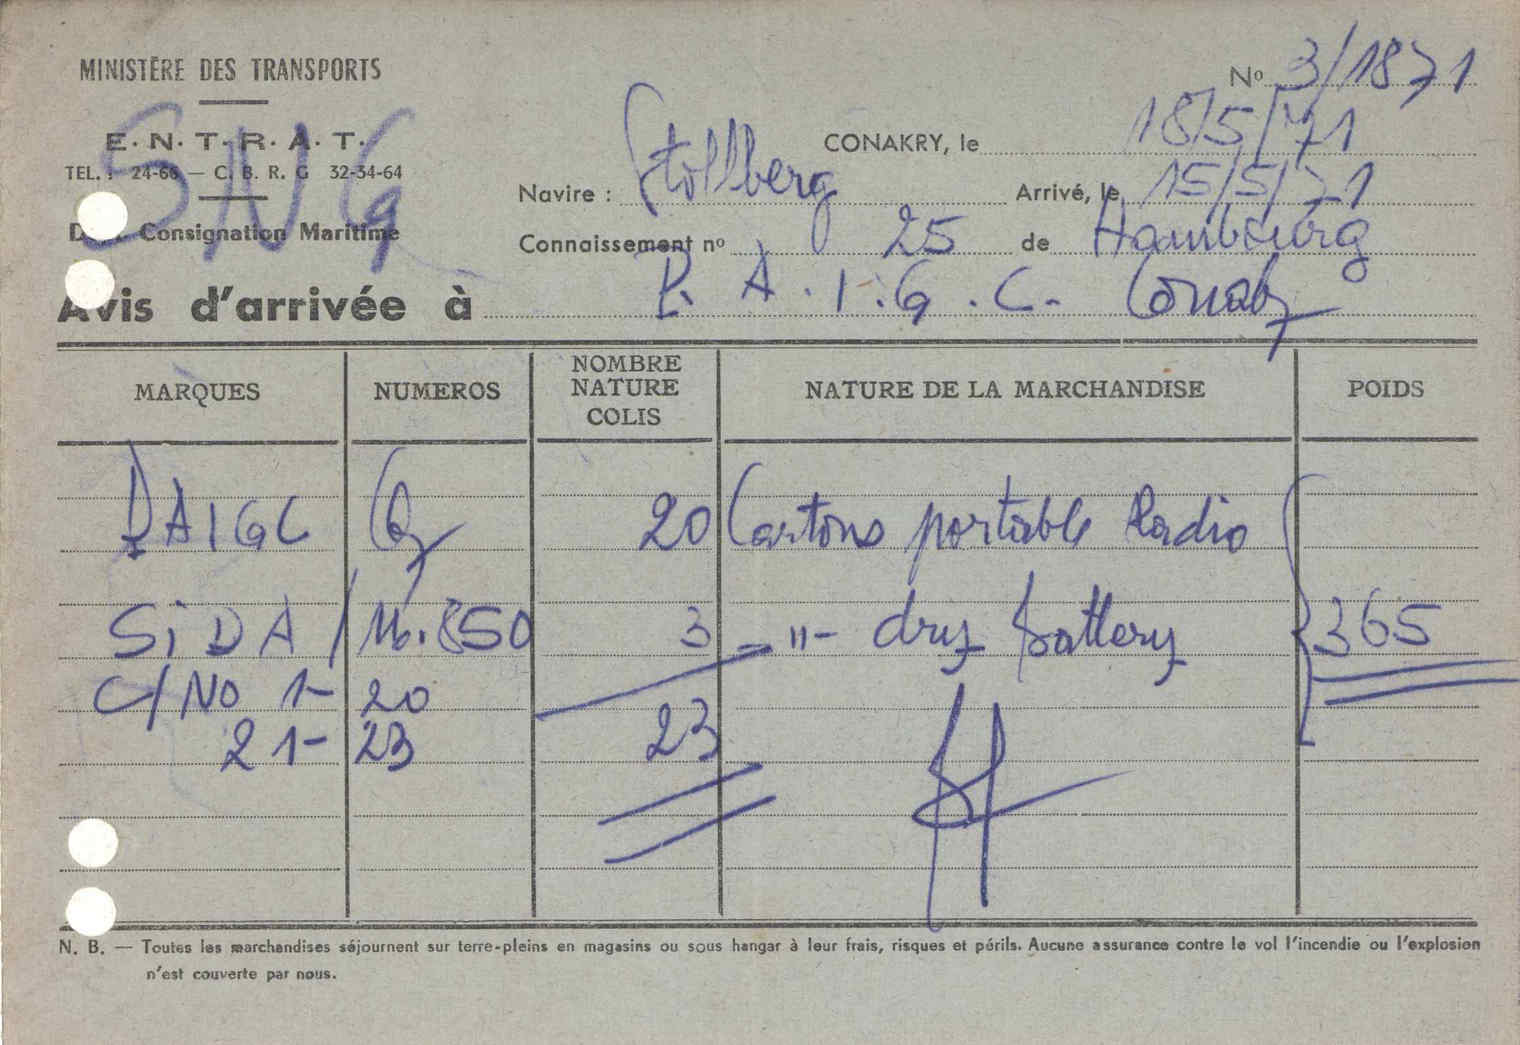 MINISTÈRE DES TRANSPORTS
Nº 3/1871
E. N. T. R. A. T.
SNG
TEL. : 24-66 — C. B. R. G 32-34-64
CONAKRY, le 18/5/71
Navire : Stollberg Arrivé, le 15/5/71
Consignation Maritime
Connaissement nº 25 de Hambourg
Avis d'arrivée à P. A. I. G. C. Conaky
MARQUES NUMEROS NOMBRE NATURE COLIS NATURE DE LA MARCHANDISE POIDS
PAIGC Cky 20 Cartons portable Radio
SiDA / 16.850 3 -"- dry battery 365
C/No 1- 20
21- 23 23
N. B. — Toutes les marchandises séjournent sur terre-pleins en magasins ou sous hangar à leur frais, risques et périls. Aucune assurance contre le vol l'incendie ou l'explosion
n'est couverte par nous.